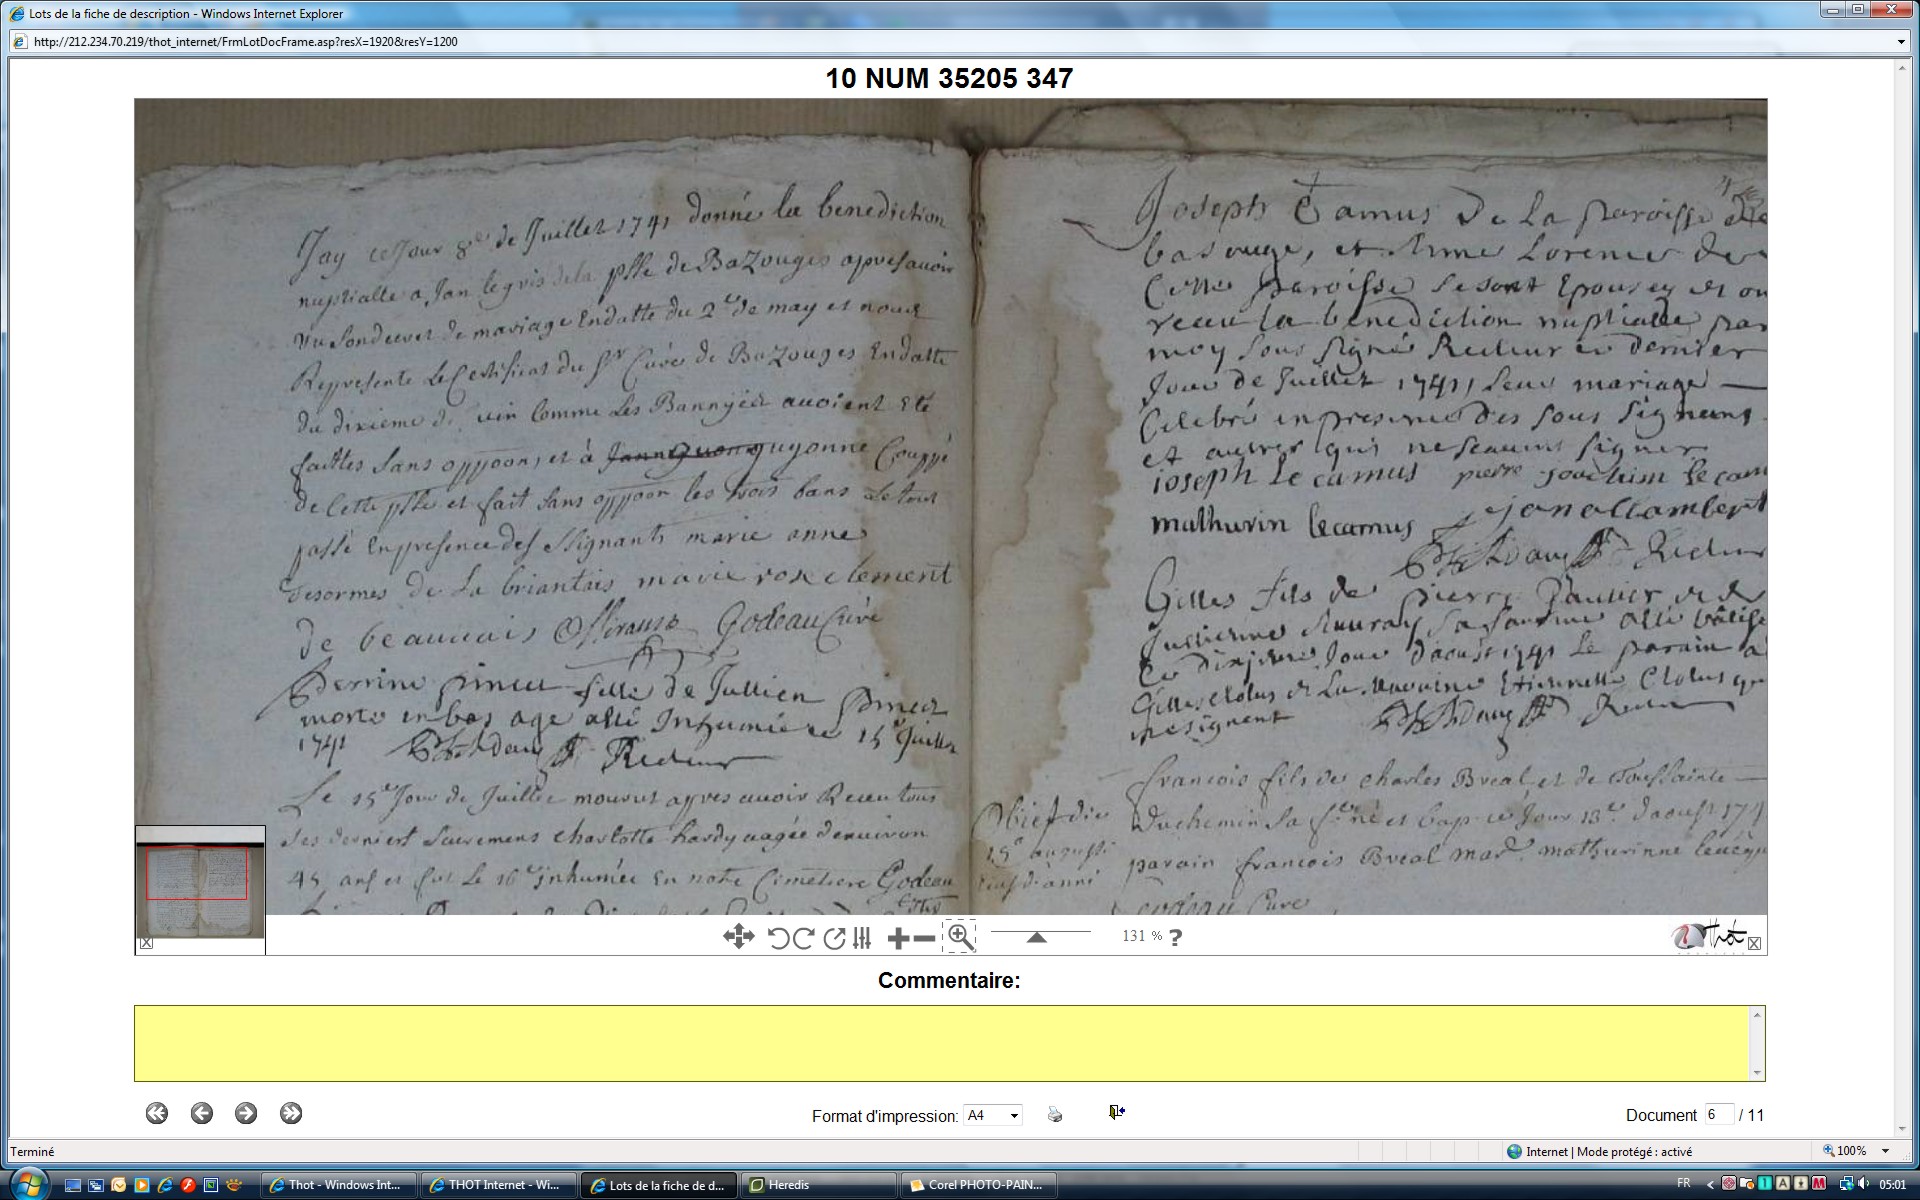 Lots de la fiche de description - Windows Internet Explorer
http://212.234.70.219/thot_internet/FrmLotDocFrame.asp?resX=1920&resY=1200
10 NUM 35205 347
Jay ce Jour 8e de Juillet 1741 donné la benediction
nuptialle a Jan legris de la psse de BaZouges apres avoir
vu son decret de mariage Endatte du 2e de may et nous
Represente le Certificat du Sr Curé de BaZouges Endatte
du dixieme de Juin Comme Les Bannyes avoient Eté
faittes sans oppoon, et à guyonne Couppé
de Cette psse et fait sans oppoon les trois bans Le tout
passé En presence des Signants marie anne
desormes de la briantais marie rose clement
de beauvais Godeau Curé
Perrine pinel fille de Jullien Pinel
morte en bas age a été Inhumée ce 15e Juillet
1741 Recteur
Le 15e Jour de Juillet mourut apres avoir Receu tous
ses derniers Sacremens charlotte hardy aagée denviron
45 ans et fut Le 16e inhumée En notre Cimetiere Godeau
Joseph Camus De La paroisse de
basouge, et Anne Lorence de
Cette paroisse se sont Epousey et on
receu la benediction nuptialle par
moy sous signé Recteur ce dernier
Jour de Juillet 1741, leur mariage
Celebré en presence des sous signants
et autres qui ne scavent signer
ioseph Le camus pierre joachim le cam
mathurin lecamus jan allambert
Recteur
Gilles fils de Pierre Gautier et de
Jullienne sa femme a été batisé
ce dixieme Jour d'aoust 1741 Le parain a
Gilles Clolus et La Maraine Etiennette Clolus qui
ne signent Recteur
Obiit die
15e augusti
ejusd anni
francois fils de charles Breal et de Toussainte
Duchemin Sa fme né et bap ce Jour 13e daoust 174
parain francois Breal mar. mathurinne levêqu
godeau Curé
131 % ?
Thot
Commentaire:
Format d'impression: A4
Document 6 / 11
Terminé
Internet | Mode protégé : activé
100%
Thot - Windows Int...
THOT Internet - Wi...
Lots de la fiche de d...
Heredis
Corel PHOTO-PAIN...
FR
05:01